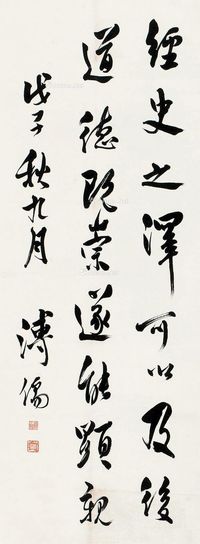 經史之澤可以及後
道德既崇遂能顯親
戊子秋九月
溥儒